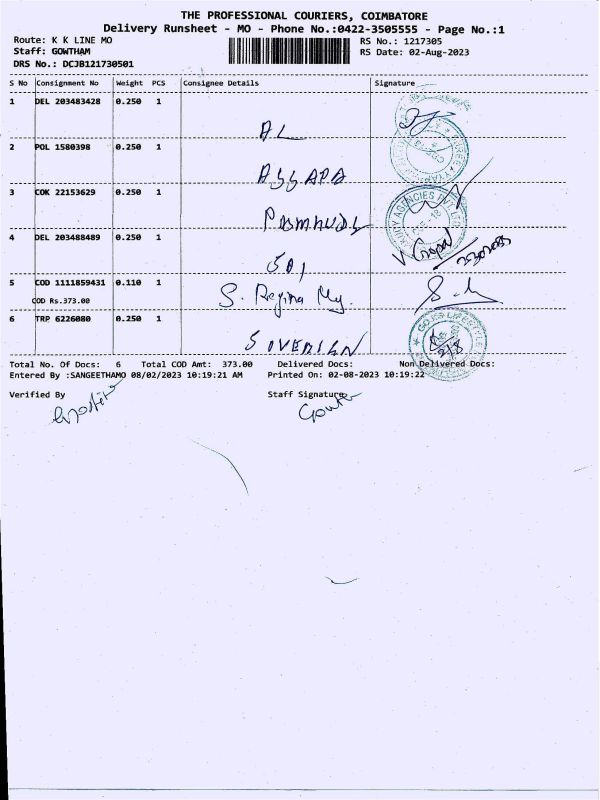 THE PROFESSIONAL COURIERS, COIMBATORE
Delivery Runsheet - MO - Phone No.:0422-3505555 - Page No.:1
Route: K K LINE MO RS No.: 1217305
Staff: GOWTHAM RS Date: 02-Aug-2023
DRS No.: DCJB121730501
S No Consignment No Weight PCS Consignee Details Signature
1 DEL 203483428 0.250 1
AL
2 POL 1580398 0.250 1
3 COK 22153629 0.250 1
4 DEL 203488489 0.250 1
V Gopal
501
5 COD 1111859431 0.110 1 S. Regina My.
COD Rs.373.00
6 TRP 6226080 0.250 1
SOVERIGN
2/8
Total No. Of Docs: 6 Total COD Amt: 373.00 Delivered Docs: Non Delivered Docs:
Entered By :SANGEETHAMO 08/02/2023 10:19:21 AM Printed On: 02-08-2023 10:19:22
Verified By Staff Signature